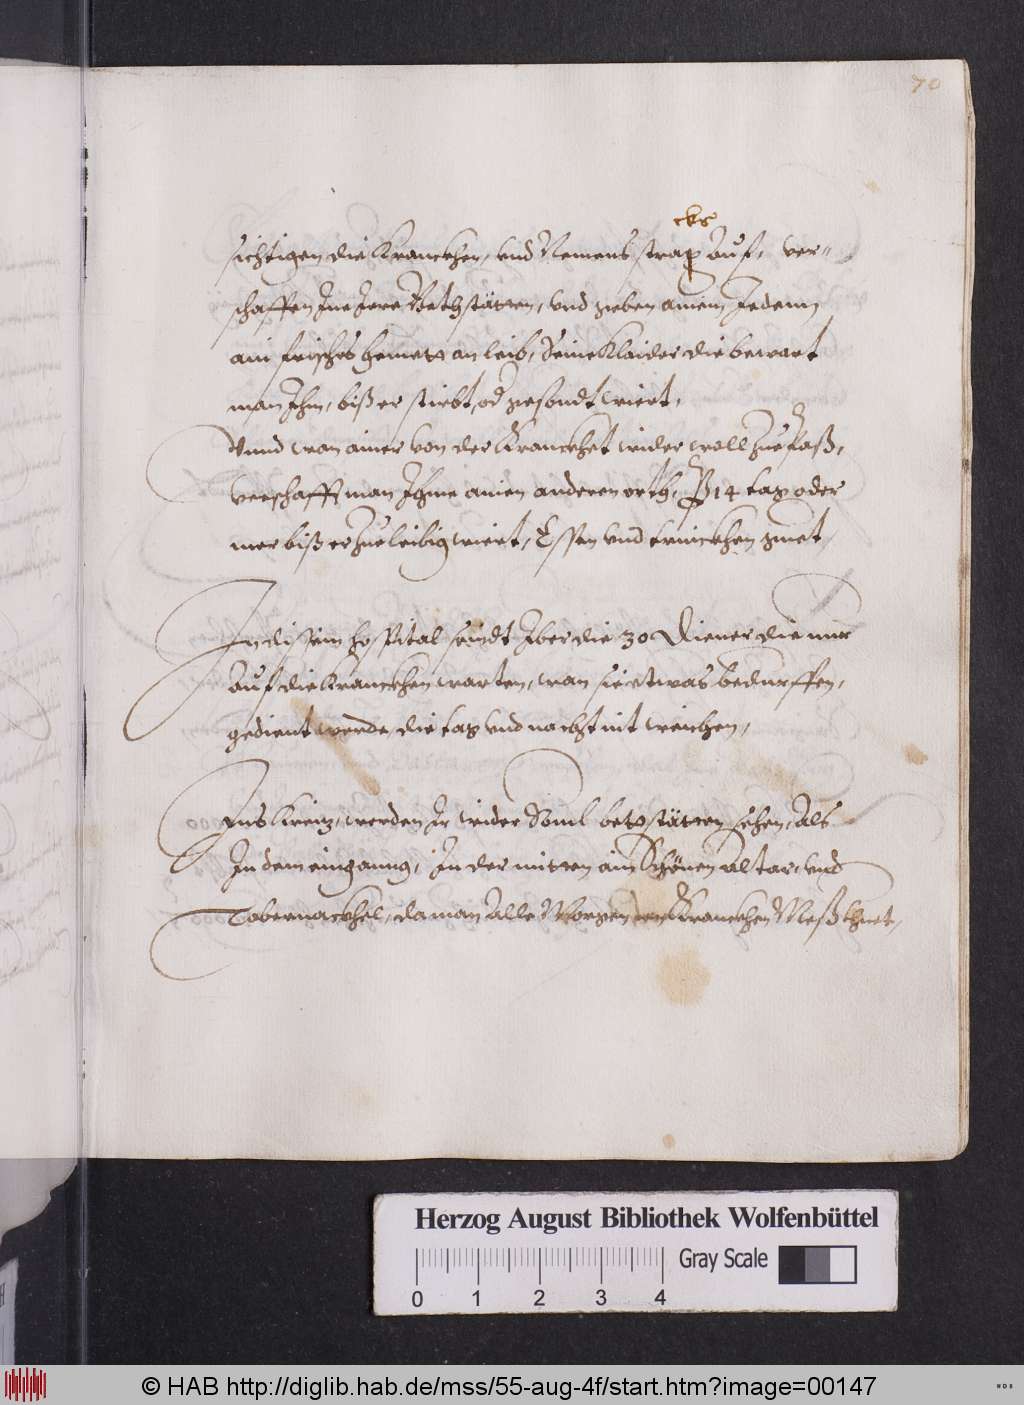 70
cks
sichtigen die Kranckhen, vnd Nemens strag auf, ver=
schaffen Jne Jere Bethstätten, vnd geben ainem Jedem
ain frisches hemett an leib, Seine Klaider die bewart
man Jhm, biß er stirbt, od gesondt wiert,
Vnnd wan ainer von der Kranckhet wider woll Zue Paß,
verschafft man Jhme ainen anderen orth, 14 tag oder
mer biß er Zue leibig wiert, Essen vnd trinckhen guet,
In disem hospital seindt Jber die 30 Diener die nur
Auf die Kranckhen warten, wan sie etwas bedurffen,
gedient werde, die tag vnd nacht nit weichen,
Ins Kreiz, werden Ir wider Souil betstätten sehen, Als
In dem einganng, In der mitten ain Schönen altar, vnd
Tabernackhel, da man Alle Morgen den Kranckhen Meß thuet,
Herzog August Bibliothek Wolfenbüttel
Gray Scale
0 1 2 3 4
© HAB http://diglib.hab.de/mss/55-aug-4f/start.htm?image=00147